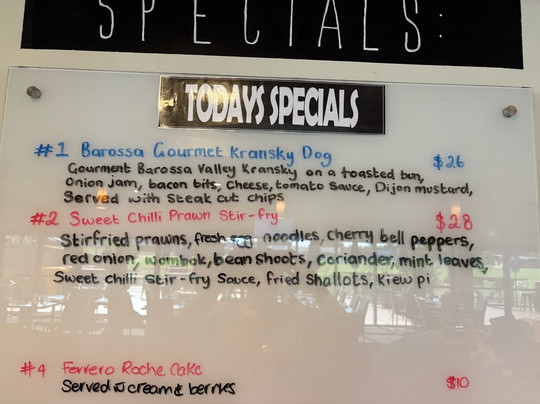 SPECIALS:
TODAYS SPECIALS
#1 Barossa Gourmet Kransky Dog $26
Gourment Barossa Valley Kransky on a toasted bun,
Onion jam, bacon bits, Cheese, tomato Sauce, Dijon mustard,
Served with Steak cut chips
#2 Sweet Chilli Prawn Stir-fry $28
Stirfried prawns, fresh egg noodles, Cherry bell peppers,
red onion, wombok, bean Shoots, Coriander, mint leaves,
Sweet chilli Stir-fry Sauce, fried Shallots, Kiew pi
#4 Ferrero Roche Cake
Served w cream & berries $10